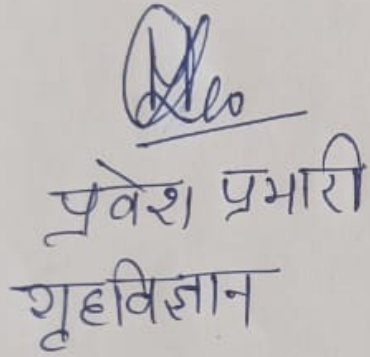 प्रवेश प्रभारी
गृहविज्ञान